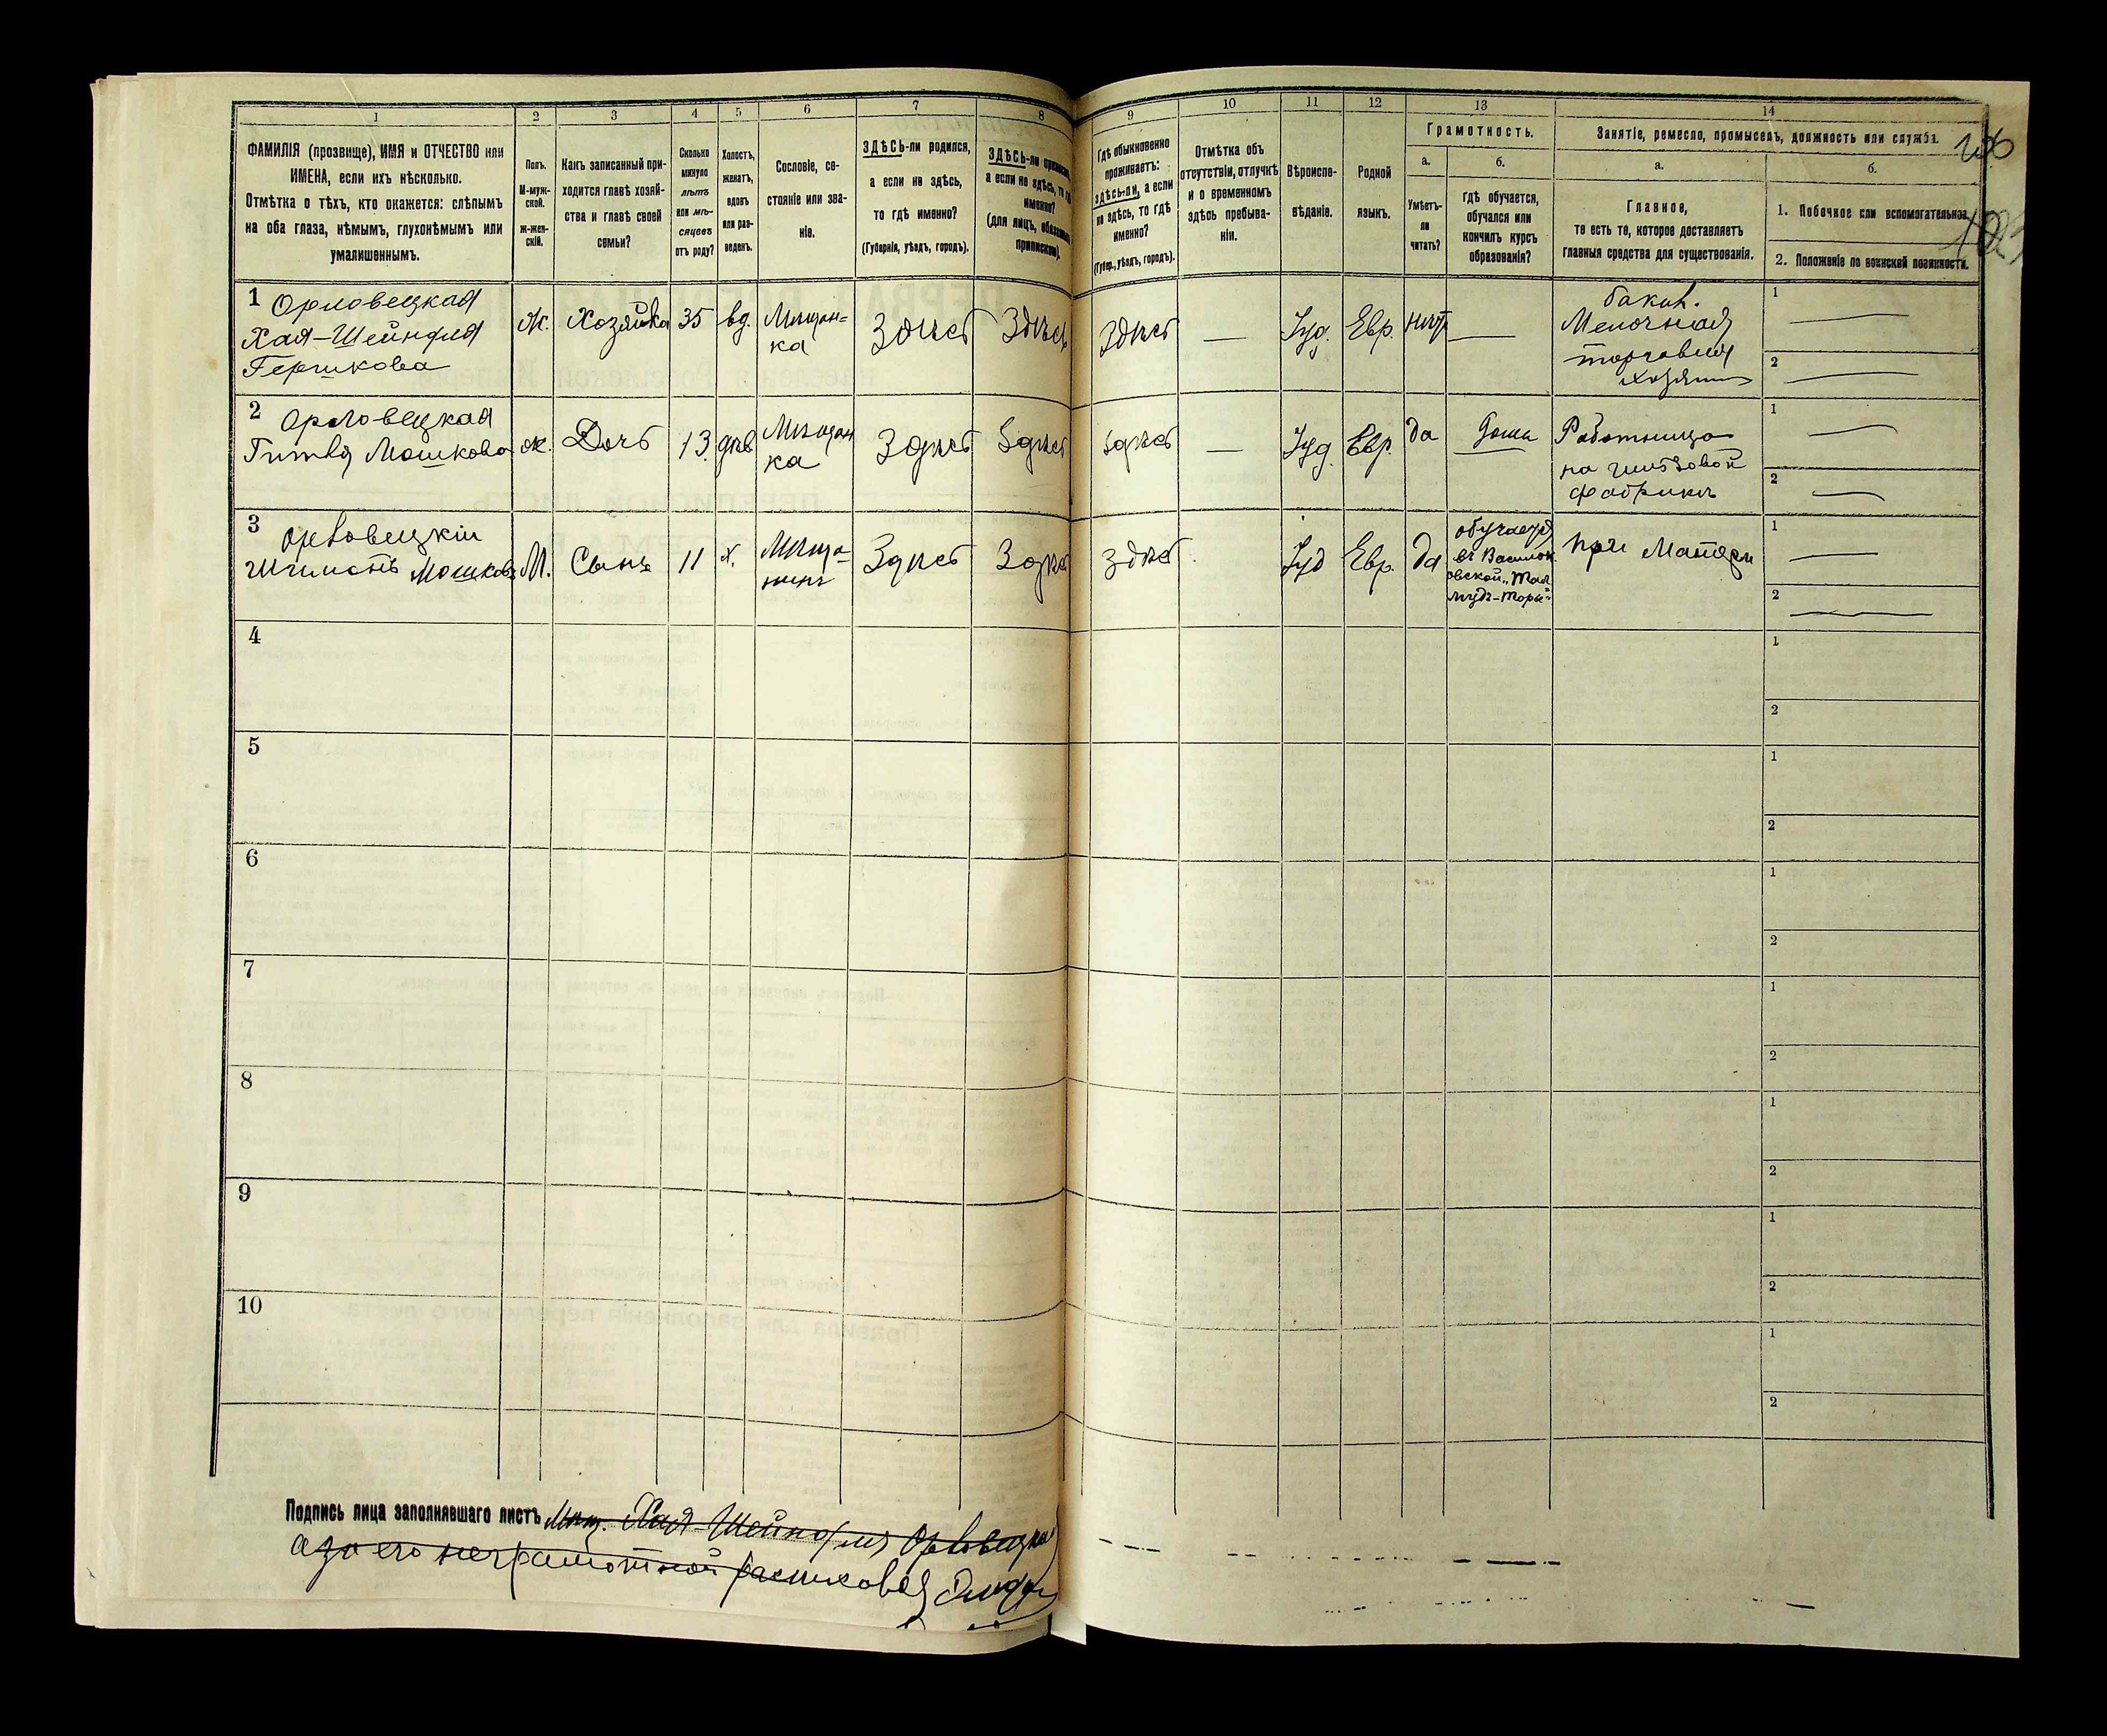 1
2
3
4
5
6
7
8
9
10
11
12
13
14
ФАМИЛІЯ (прозвище), ИМЯ и ОТЧЕСТВО или
ИМЕНА, если ихъ нѣсколько.
Отмѣтка о тѣхъ, кто окажется: слѣпымъ
на оба глаза, нѣмымъ, глухонѣмымъ или
умалишеннымъ.
Полъ.
М-муж-
ской.
Ж-жен-
скій.
Какъ записанный при-
ходится главѣ хозяй-
ства и главѣ своей
семьи?
Сколько
минуло
лѣтъ
или мѣ-
сяцевъ
отъ роду?
Холостъ,
женатъ,
вдовъ
или раз-
веденъ.
Сословіе, со-
стояніе или зва-
ніе.
ЗДѢСЬ-ли родился,
а если не здѣсь,
то гдѣ именно?
(Губернія, уѣздъ, городъ).
ЗДѢСЬ-ли
а если не здѣсь, то
именно?
(для лицъ,
Гдѣ обыкновенно
проживаетъ:
здѣсь-ли, а если
не здѣсь, то гдѣ
именно?
(Губер., уѣздъ, городъ).
Отмѣтка объ
отсутствіи, отлучкѣ
и о временномъ
здѣсь пребыва-
ніи.
Вѣроиспо-
вѣданіе.
Родной
языкъ.
Грамотность.
а.
б.
Умѣетъ-
ли
читать?
Гдѣ обучается,
обучался или
кончилъ курсъ
образованія?
Занятіе, ремесло, промыселъ, должность или служба.
а.
б.
Главное,
то есть то, которое доставляетъ
главныя средства для существованія.
1. Побочное или вспомогательное.
2. Положеніе по воинской повинности.
1 Орловецкая
Хая-Шейндля
Гершкова
Ж.
Хозяйка
35
вд.
Мѣщан-
ка
Здѣсь
Здѣсь
Здѣсь
—
Іуд.
Евр.
нѣтъ
—
бакал.
Мелочная
торговля
хозяин
1 —
2 —
2 Орловецкая
Гитля Мошкова
ж.
Дочь
13
дѣв
Мѣщан
ка
Здѣсь
Здѣсь
Здѣсь
—
Іуд.
Евр.
да
Дома
Работница
на гильзовой
фабрикѣ
1 —
2 —
3 Орловецкій
Мошковъ
М.
Сынъ
11
х.
Мѣща-
нинъ
Здѣсь
Здѣсь
Здѣсь
Іуд
Евр.
да
обучается
въ Васильк
овской „Тал
мудъ-Торы“
при Матери
1 —
2 —
4
1
2
5
1
2
6
1
2
7
1
2
8
1
2
9
1
2
10
1
2
Подпись лица заполнявшаго листъ Мѣщ. Хая-Шейндля Орловецкая
а за его неграмотной расписался